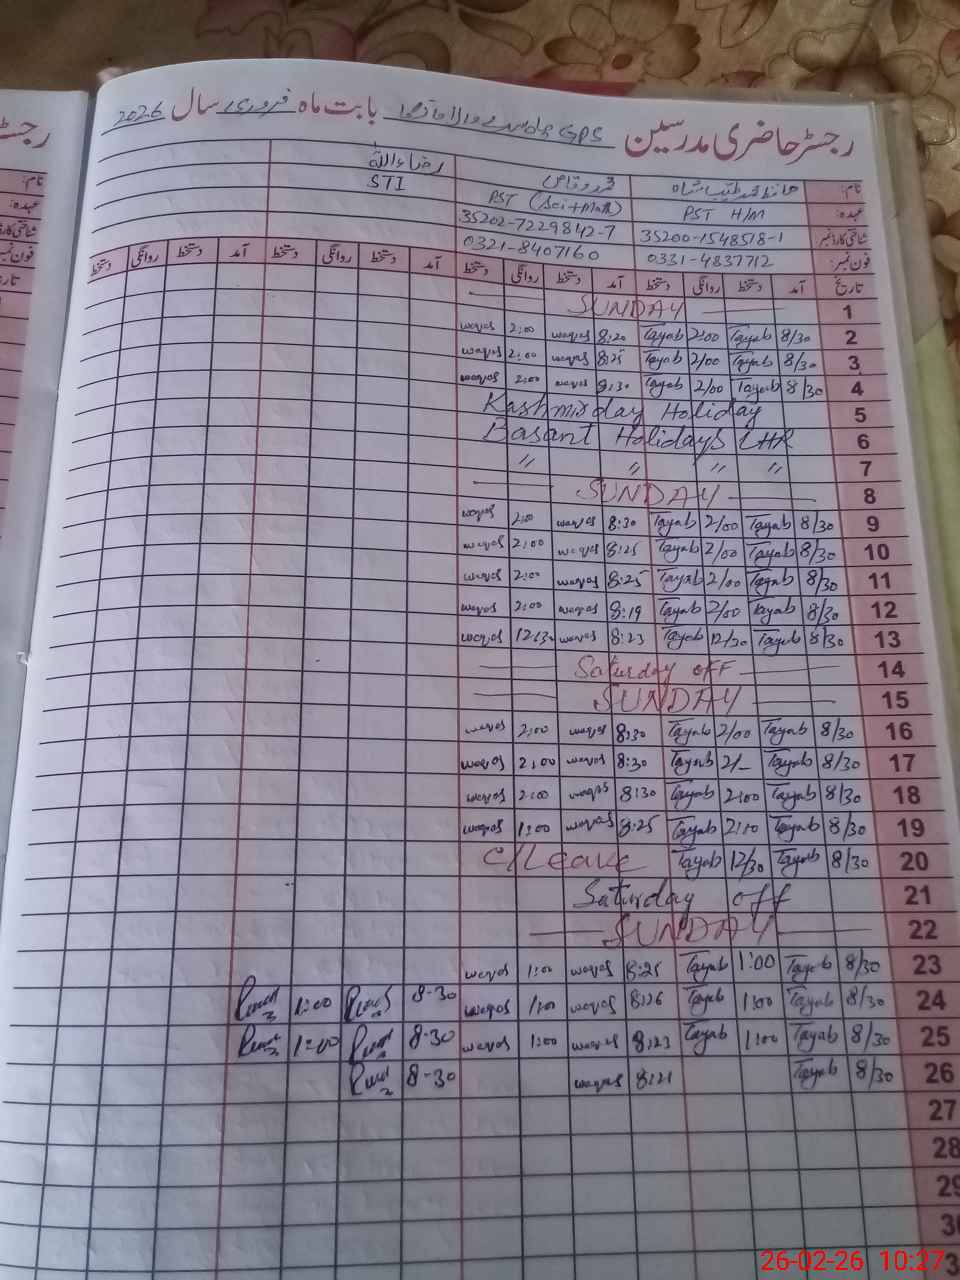 رجسٹر حاضری مدرسین GPS بابت ماہ فروری سال 2026
نام: حافظ محمد طیب شاہ محمد وقاص رضاءاللہ
عہدہ: PST H/M PST (Sci+Math) STI
شناختی کارڈ نمبر 35200-1548518-1 35202-7229842-7
فون نمبر: 0331-4837712 0321-8407160
تاریخ آمد دستخط روانگی دستخط آمد دستخط روانگی دستخط آمد دستخط روانگی دستخط آمد دستخط روانگی دستخط
1 SUNDAY
2 8/30 Tayab 2:00 Tayab 8:20 waqas 2:00 waqas
3 8/30 Tayab 2/00 Tayab 8:25 waqas 2:00 waqas
4 8/30 Tayab 2/00 Tayab 8:30 waqas 2:00 waqas
5 Kashmir day Holiday
6 Basant Holidays LHR
7 〃 〃 〃 〃
8 SUNDAY
9 8/30 Tayab 2/00 Tayab 8:30 waqas 2:00 waqas
10 8/30 Tayab 2/00 Tayab 8:25 waqas 2:00 waqas
11 8/30 Tayab 2/00 Tayab 8:25 waqas 2:00 waqas
12 8/30 Tayab 2/00 Tayab 8:19 waqas 2:00 waqas
13 8/30 Tayab 12/30 Tayab 8:23 waqas 12:30 waqas
14 Saturday off
15 SUNDAY
16 8/30 Tayab 2/00 Tayab 8:30 waqas 2:00 waqas
17 8/30 Tayab 2/- Tayab 8:30 waqas 2:00 waqas
18 8/30 Tayab 2:00 Tayab 8:30 waqas 2:00 waqas
19 8/30 Tayab 2:00 Tayab 8:25 waqas 1:00 waqas
20 8/30 Tayab 12/30 Tayab C/Leave
21 Saturday off
22 SUNDAY
23 8/30 Tayab 1:00 Tayab 8:25 waqas 1:00 waqas
24 8/30 Tayab 1:00 Tayab 8:26 waqas 1:00 waqas 8-30 1:00
25 8/30 Tayab 1:00 Tayab 8:23 waqas 1:00 waqas 8-30 1:00
26 8/30 Tayab 8:21 waqas 8-30
27
28
29
30
26-02-26 10:27